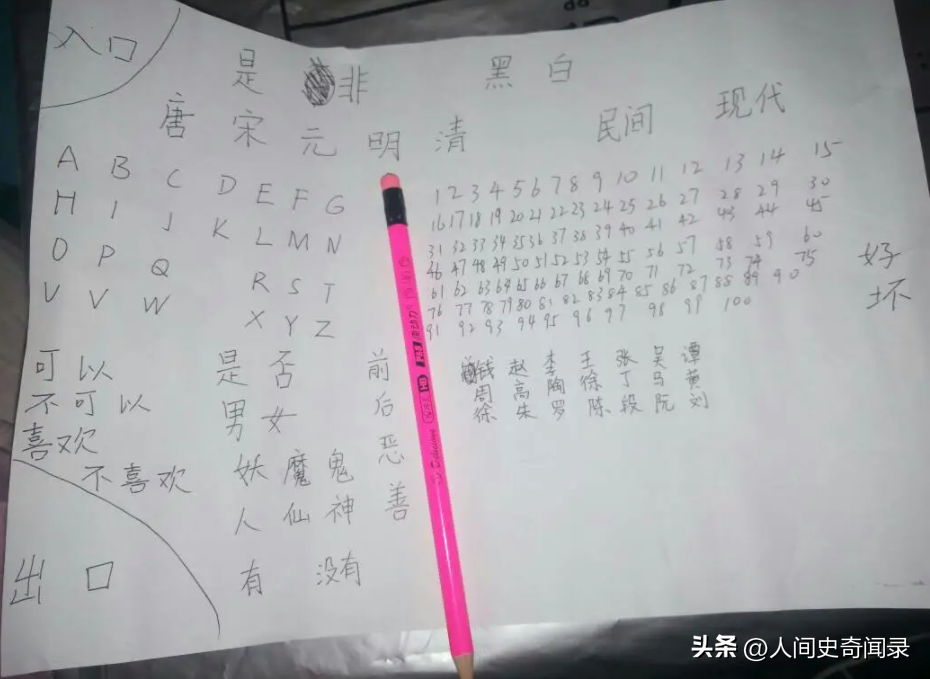 入口
是 非 黑 白
唐 宋 元 明 清 民间 现代
A B C D E F G
H I J K L M N
O P Q R S T
V V W X Y Z
1 2 3 4 5 6 7 8 9 10 11 12 13 14 15
16 17 18 19 20 21 22 23 24 25 26 27 28 29 30
31 32 33 34 35 36 37 38 39 40 41 42 43 44 45
46 47 48 49 50 51 52 53 54 55 56 57 58 59 60
61 62 63 64 65 66 67 68 69 70 71 72 73 74 75
76 77 78 79 80 81 82 83 84 85 86 87 88 89 90
91 92 93 94 95 96 97 98 99 100
好
坏
可以 是否 前
不可以 男女 后
喜欢
不喜欢 妖魔鬼 恶
人仙神 善
钱 赵 李 王 张 吴 谭
周 高 陶 徐 丁 马 黄
徐 朱 罗 陈 段 阮 刘
出口 有 没有
头条 @人间史奇闻录